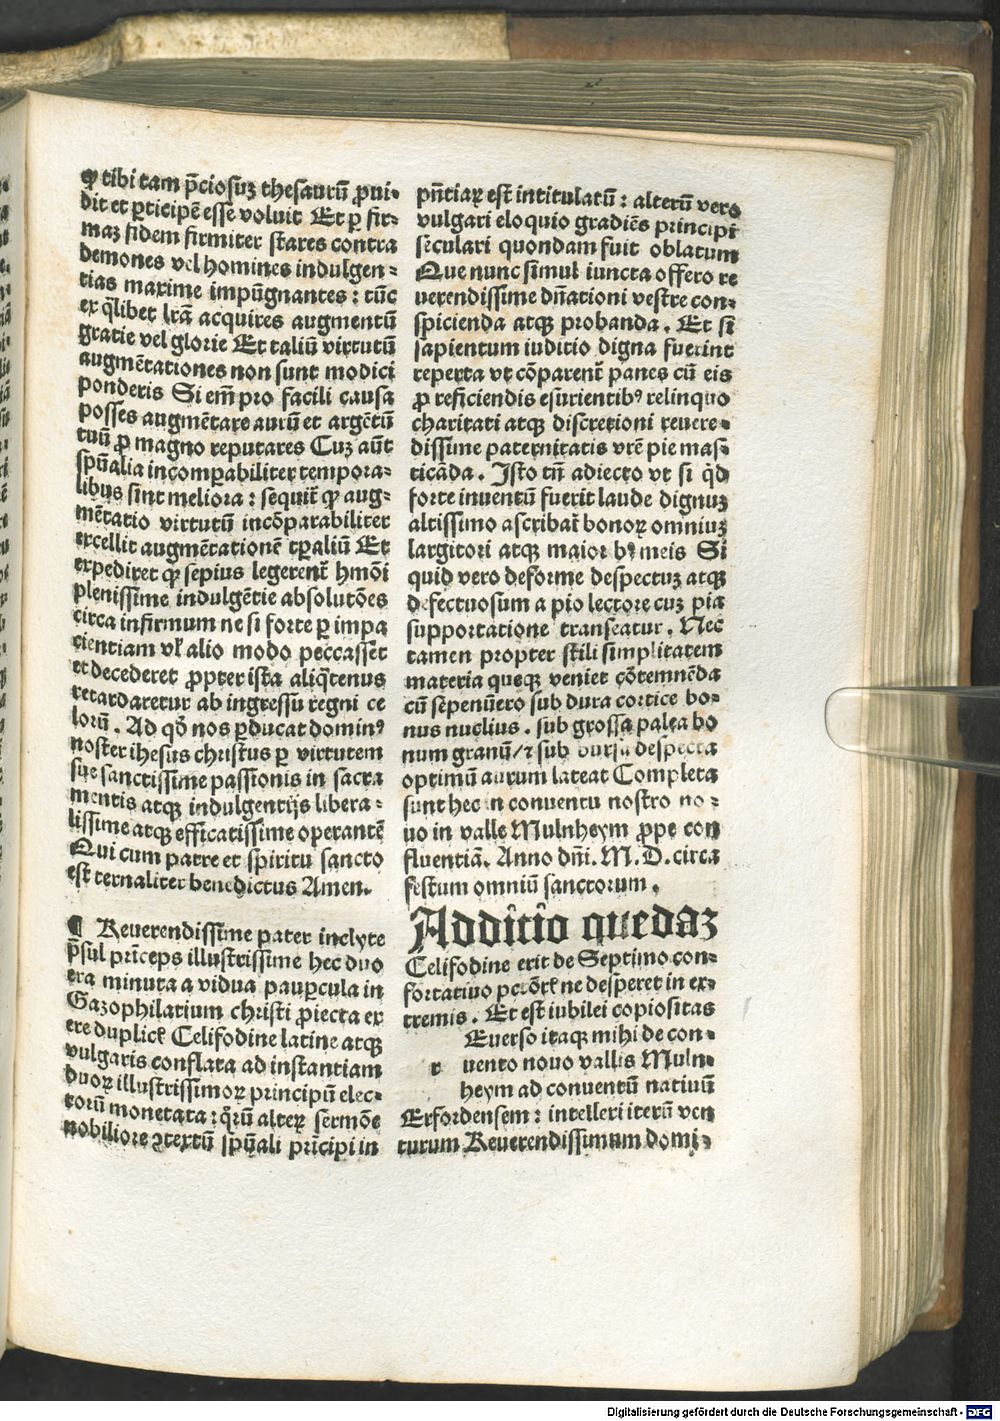 ꝙ tibi tam p̄ciosuꝫ thesaurū ꝓui-
dit et ꝑticipē esse voluit Et ꝑ fir-
maꝫ fidem firmiter stares contra
demones vel homines indulgen-
tias maxime impūgnantes : tūc
ex q̄libet lrā acquires augmentū
gratie vel glorie Et taliū virtutū
augmētationes non sunt modici
ponderis Si em̄ pro facili causa
posses augmētare aurū et argētū
tuū ꝓ magno reputares Cuꝫ aūt
spūalia incomꝑabiliter tempora-
libus sint meliora : sequit᷑ ꝙ aug-
mētatio virtutū incōparabiliter
excellit augmētationē tꝑaliū Et
expediret ꝙ sepius legerent᷑ hmōi
plenissime indulgētie absolutōes
circa infirmum ne si forte ꝑ impa
cientiam vl̓ alio modo peccasset
et decederet ꝓpter ista aliq̄tenus
retardaretur ab ingressu regni ce
lorū . Ad qd̄ nos ꝑducat dominꝰ
noster ihesus christus ꝑ virtutem
sue sanctissime passionis in sacra
mentis atqꝫ indulgentijs libera-
lissime atqꝫ efficatissime operantē
Qui cum patre et spiritu sancto
est ternaliter benedictus Amen.
¶ Reuerendissime pater inclyte
p̄sul prīceps illustrissime hec duo
era minuta a vidua pauꝑcula in
Gazophilatium christi ꝓiecta ex
ere duplick̓ Celifodine latine atqꝫ
vulgaris conflata ad instantiam
duoꝝ illustrissimoꝝ principū elec-
torū monetata : qͣrū alteꝝ sermōe
nobiliore ꝯtextū spūali prīcipi in
pn̄tiaꝝ est intitulatū : alterū vero
vulgari eloquio gradiēs principi
seculari quondam fuit oblatum
Que nunc simul iuncta offero re
uerendissime dn̄ationi vestre con-
spicienda atqꝫ probanda . Et si
sapientum iuditio digna fuerint
reperta vt cōparent᷑ panes cū eis
ꝓ reficiendis esurientibꝰ relinquo
charitati atqꝫ discretioni reuere-
dissime paternitatis vrē pie mas-
ticāda . Isto tn̄ adiecto vt si qd̄
forte inuentū fuerit laude dignuꝫ
altissimo ascribat᷑ bonoꝝ omniuꝫ
largitori atqꝫ maioribꝰ meis Si
quid vero deforme despectuꝫ atqꝫ
defectuosum a pio lectore cuꝫ pia
supportatione transeatur . Nec
tamen propter stili simplitatem
materia queqꝫ veniet cōtemnēda
cū sepenūero sub dura cortice bo-
nus nuclius . sub grossa palea bo
num granū / ⁊ sub bursa despecta
optimū aurum lateat Completa
sunt hec in conuentu nostro no-
uo in valle Mulnheym ꝓpe con
fluentiā . Anno dn̄i . M . D . circa
festum omniū sanctorum .
Additio quedaꝫ
Celifodine erit de Septimo con-
fortatiuo pctōr̄ ne desperet in ex-
tremis . Et est iubilei copiositas
Euerso itaqꝫ mihi de con-
r uento nouo vallis Muln-
heym ad conuentū natiuū
Erfordensem : intellexi iterū ven
turum Reuerendissimum domi-
Digitalisierung gefördert durch die Deutsche Forschungsgemeinschaft - DFG